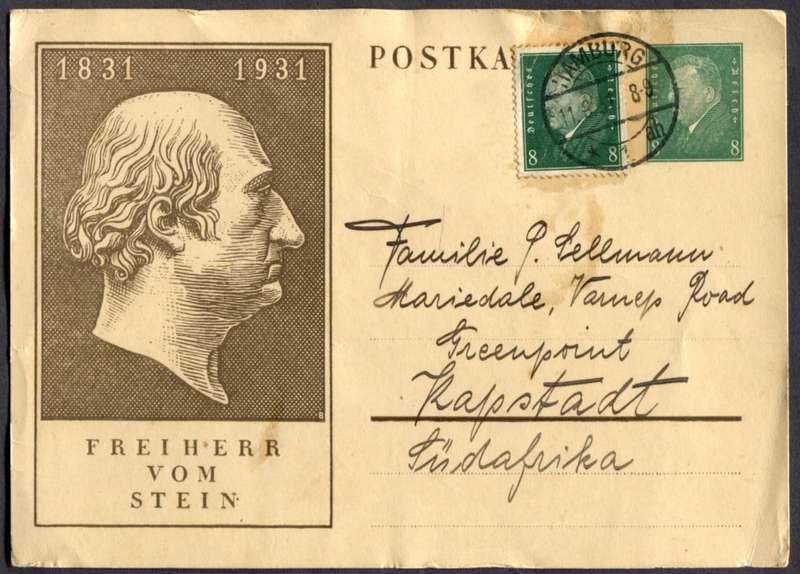 1831 1931
POSTKA
HAMBURG
8-9
11
Deutsches
Reich
8 8
8 8
Familie P. Sellmann
Mariedale, Varnep Road
Greenpoint
Kapstadt
Südafrika
FREIHERR
VOM
STEIN